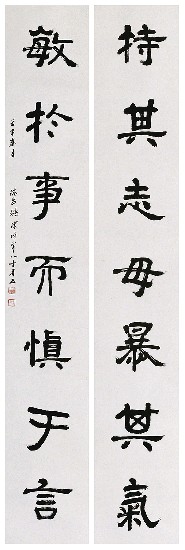 持其志毋暴其氣
敏於事而慎于言